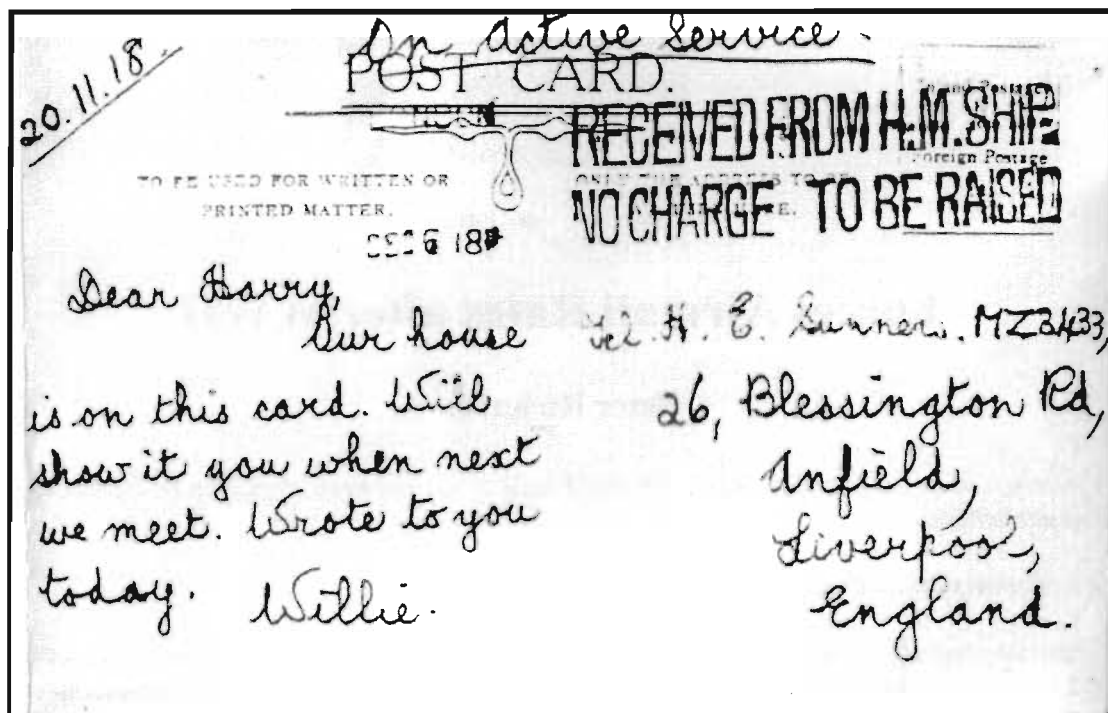 On Active Service.
20.11.18.
POST CARD.
RECEIVED FROM H.M. SHIP
NO CHARGE TO BE RAISED
Foreign Postage
TO BE USED FOR WRITTEN OR
PRINTED MATTER.
ONLY THE ADDRESS TO BE
DEC 6 18
Dear Harry,
Our house
is on this card. Will
show it you when next
we meet. Wrote to you
today.
Willie.
H. E. Sunner. MZ3433,
26, Blessington Rd,
Anfield,
Liverpool,
England.